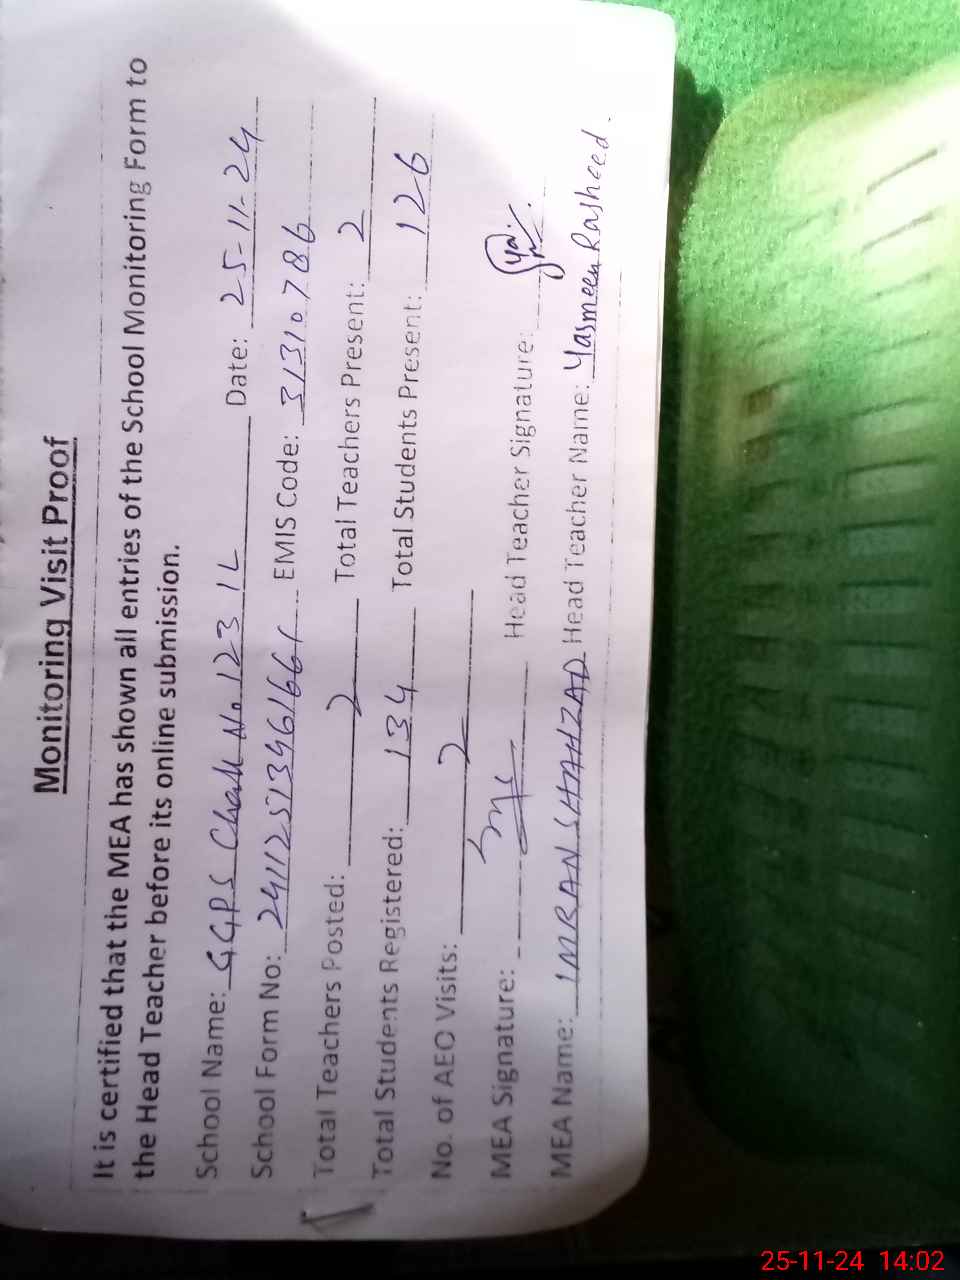 Monitoring Visit Proof
It is certified that the MEA has shown all entries of the School Monitoring Form to
the Head Teacher before its online submission.
School Name: GGPS Chak No. 123 1L Date: 25-11-24
School Form No: 24112513461661 EMIS Code: 31310786
Total Teachers Posted: 2 Total Teachers Present: 2
Total Students Registered: 134 Total Students Present: 126
No. of AEO Visits: 2
MEA Signature: Head Teacher Signature:
MEA Name: IMRAN SHAHZAD Head Teacher Name: Yasmeen Rasheed.
25-11-24 14:02